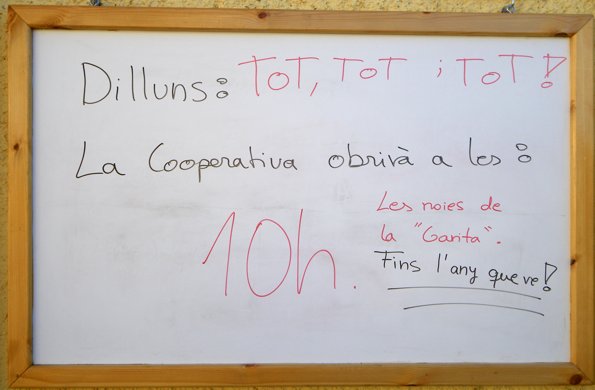 Dilluns: TOT, TOT i TOT!
La Cooperativa obrirà a les:
10h.
Les noies de
la "Garita".
Fins l'any que ve!